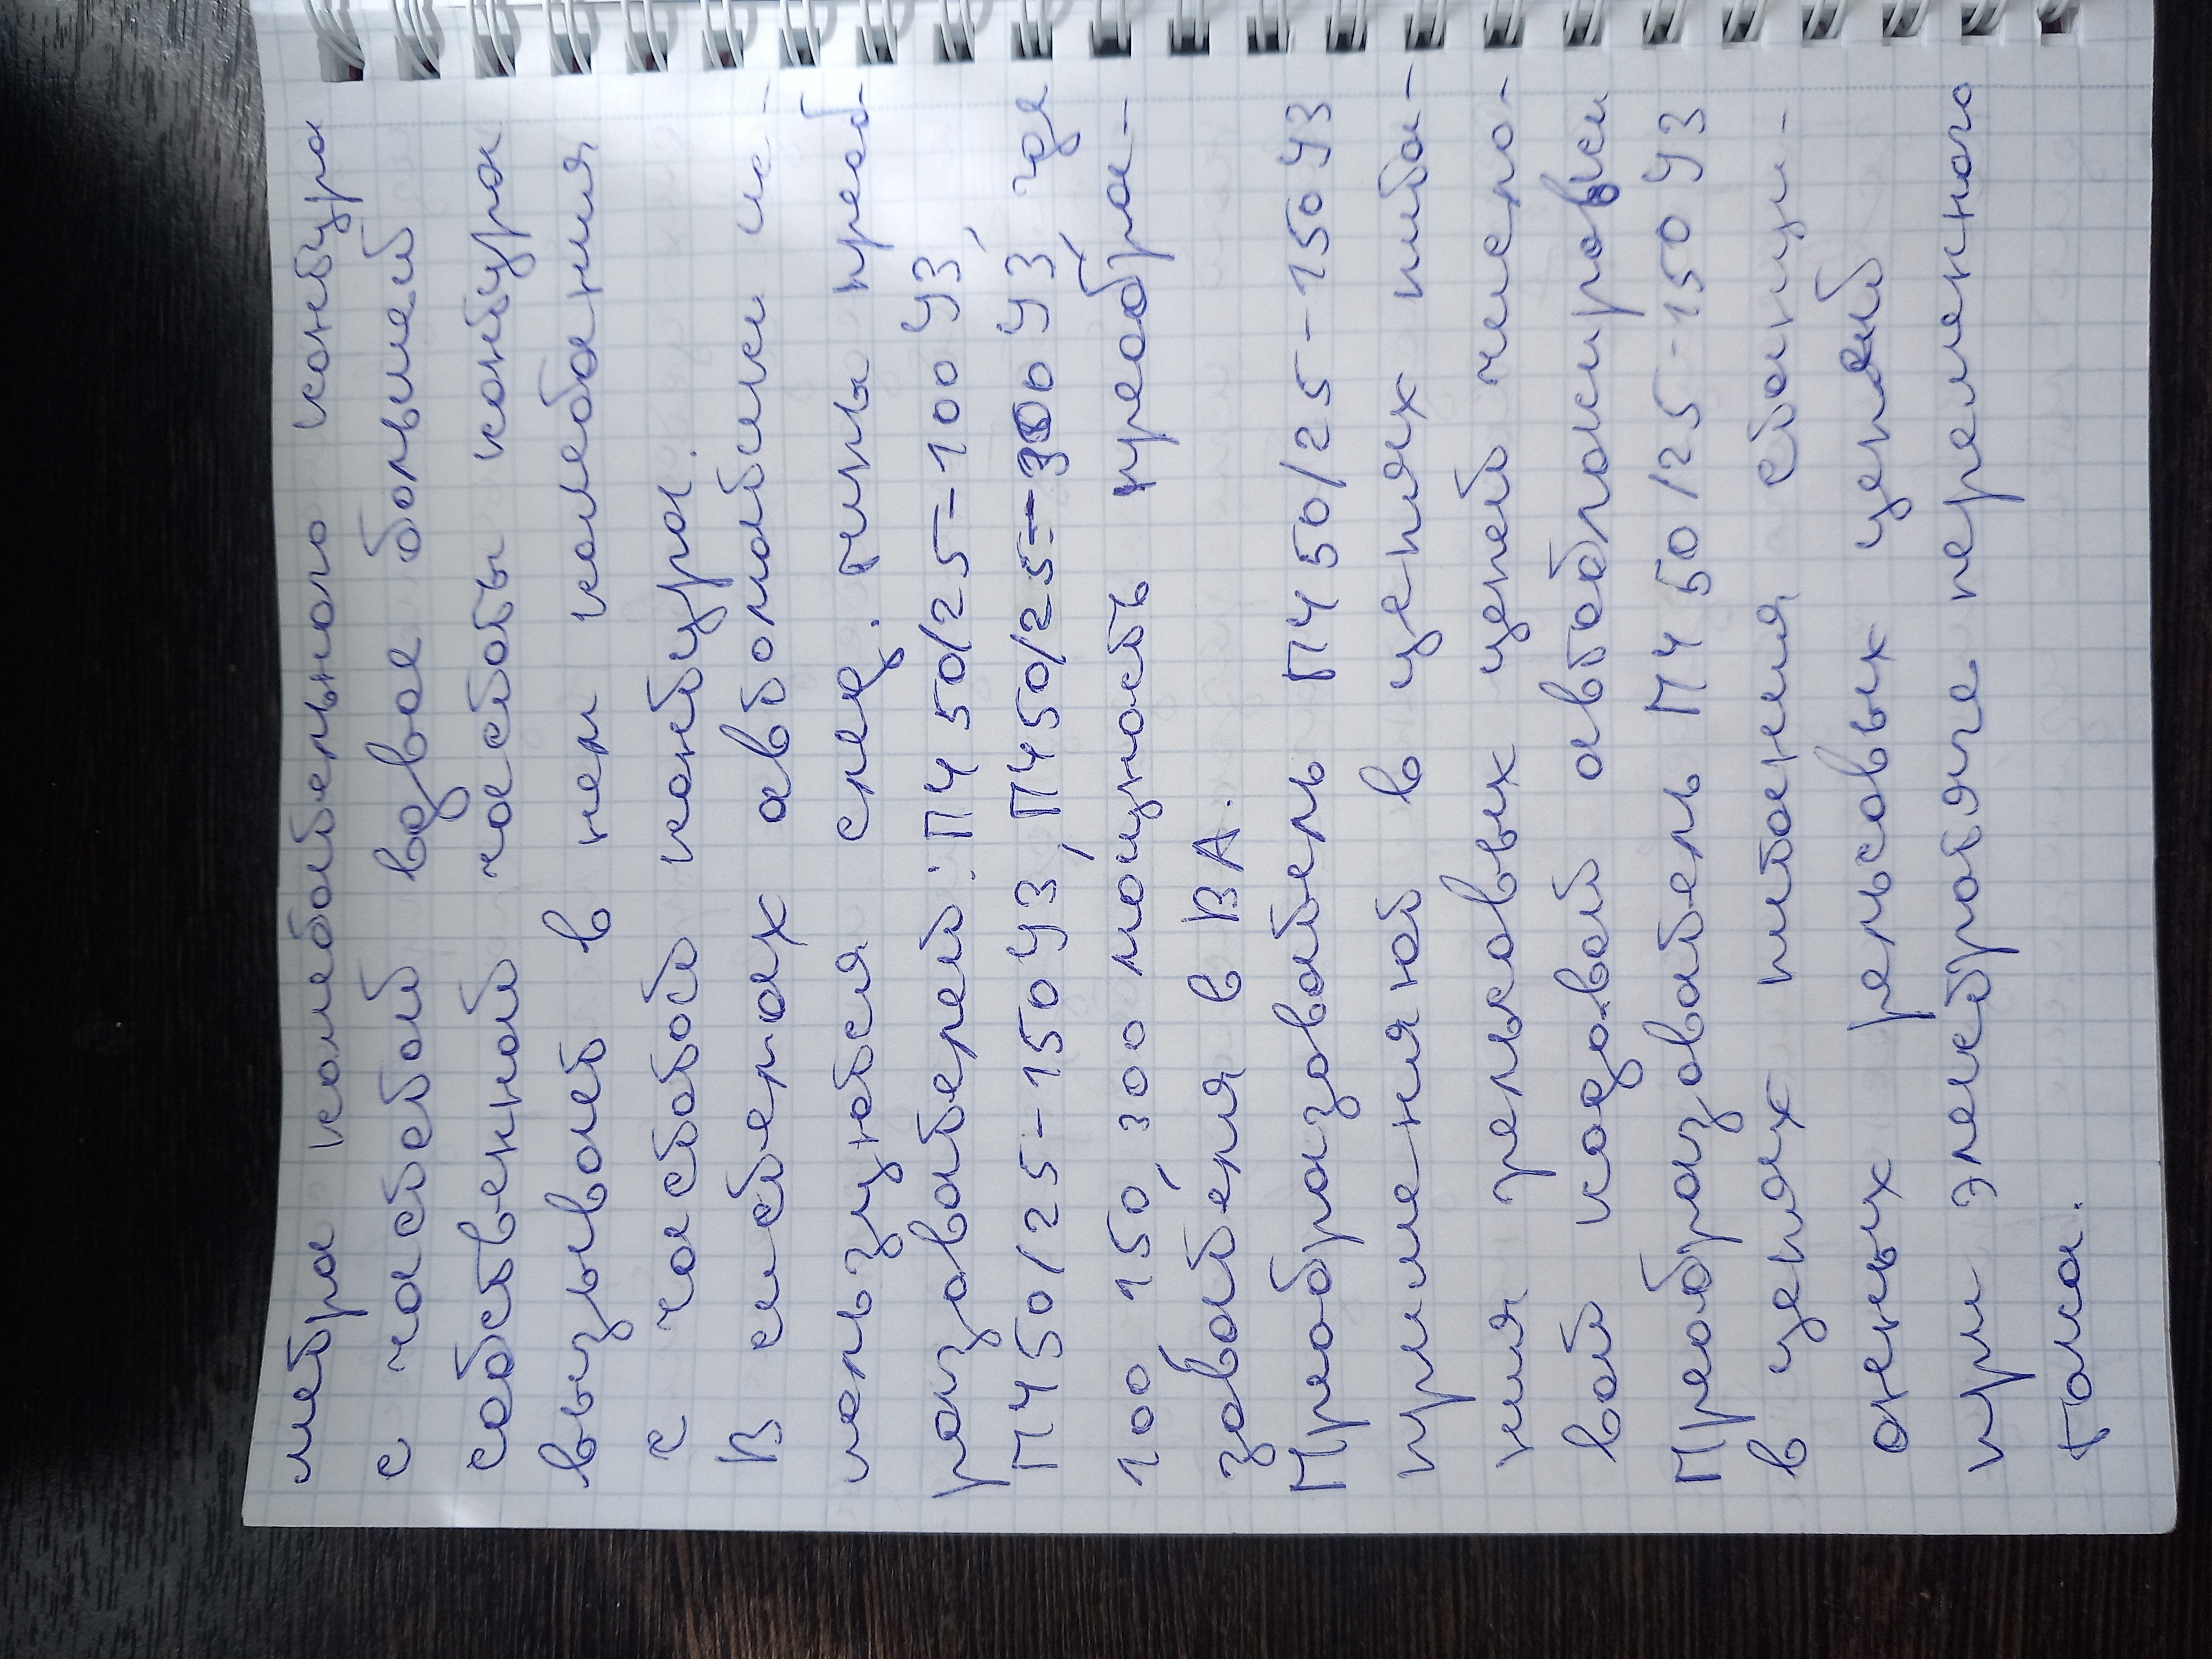 метра колебательного контура
с частотой вдвое большей
собственной частоты контура
вызывает в нем колебания
с частотой контура.
В системах автоматики ис-
пользуются след. типы преоб-
разователей: ПЧ 50/25-100 У3,
ПЧ50/25-150У3, ПЧ50/25-300У3, где
100, 150, 300 мощность преобра-
зователя в ВА.
Преобразователь ПЧ 50/25-150У3
применяют в цепях пита-
ния рельсовых цепей число-
вой кодовой автоблокировки
Преобразователь ПЧ 50/25-150У3
в цепях питания станци-
онных рельсовых цепей
при электротяге переменного
тока.